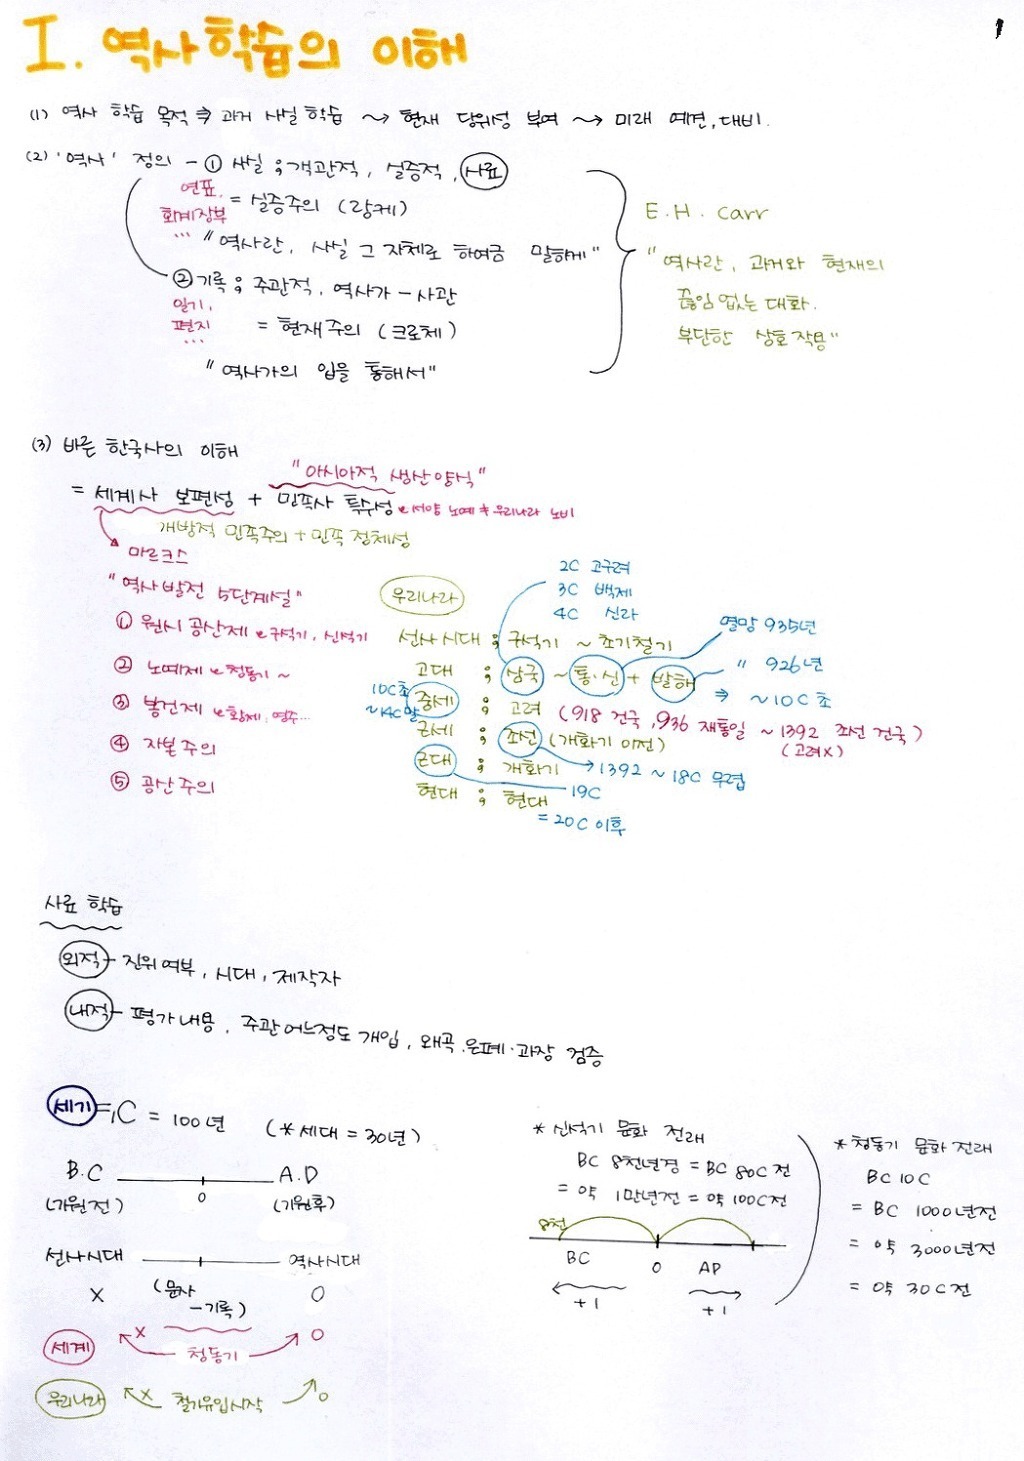 1
I. 역사 학습의 이해
(1) 역사 학습 목적 ⇒ 과거 사실 학습 ~> 현재 당위성 부여 ~> 미래 예견, 대비.
(2) '역사' 정의 - ① 사실 ; 객관적, 실증적, 사료
연표,
회계장부
...
= 실증주의 (랑케)
"역사란, 사실 그 자체로 하여금 말하게"
② 기록 ; 주관적, 역사가 - 사관
일기,
편지
...
= 현재주의 (크로체)
"역사가의 입을 통해서"
E.H. Carr
"역사란, 과거와 현재의
끊임 없는 대화.
부단한 상호작용"
(3) 바른 한국사의 이해
"아시아적 생산양식"
= 세계사 보편성 + 민족사 특수성 서양 노예 ≠ 우리나라 노비
개방적 민족주의 + 민족 정체성
마르크스
"역사발전 5단계설"
① 원시 공산제 구석기, 신석기
② 노예제 청동기 ~
③ 봉건제 황제, 영주...
④ 자본주의
⑤ 공산주의
우리나라
2C 고구려
3C 백제
4C 신라
선사시대 ; 구석기 ~ 초기철기
멸망 935년
고대 ; 삼국 ~ 통·신 + 발해
" 926년
⇒ ~10C 초
10C초
~14C말
중세 ; 고려 (918 건국, 936 재통일 ~ 1392 조선 건국)
(고려X)
근세 ; 조선 (개화기 이전)
→ 1392 ~ 18C 무렵
근대 ; 개화기
19C
현대 ; 현대
= 20C 이후
사료 학습
외적 - 진위여부, 시대, 제작자
내적 - 평가내용, 주관 어느정도 개입, 왜곡·은폐·과장 검증
세기 = 1C = 100년 (*세대 = 30년)
B.C A.D
(기원전) 0 (기원후)
선사시대 역사시대
X (문자 O
-기록)
세계 X 청동기 O
우리나라 X 철기유입시작 O
* 신석기 문화 전래
BC 8천년경 = BC 80C 전
= 약 1만년전 = 약 100C전
8천
BC 0 AP
+1 +1
* 청동기 문화 전래
BC 10C
= BC 1000년전
= 약 3000년전
= 약 30C 전